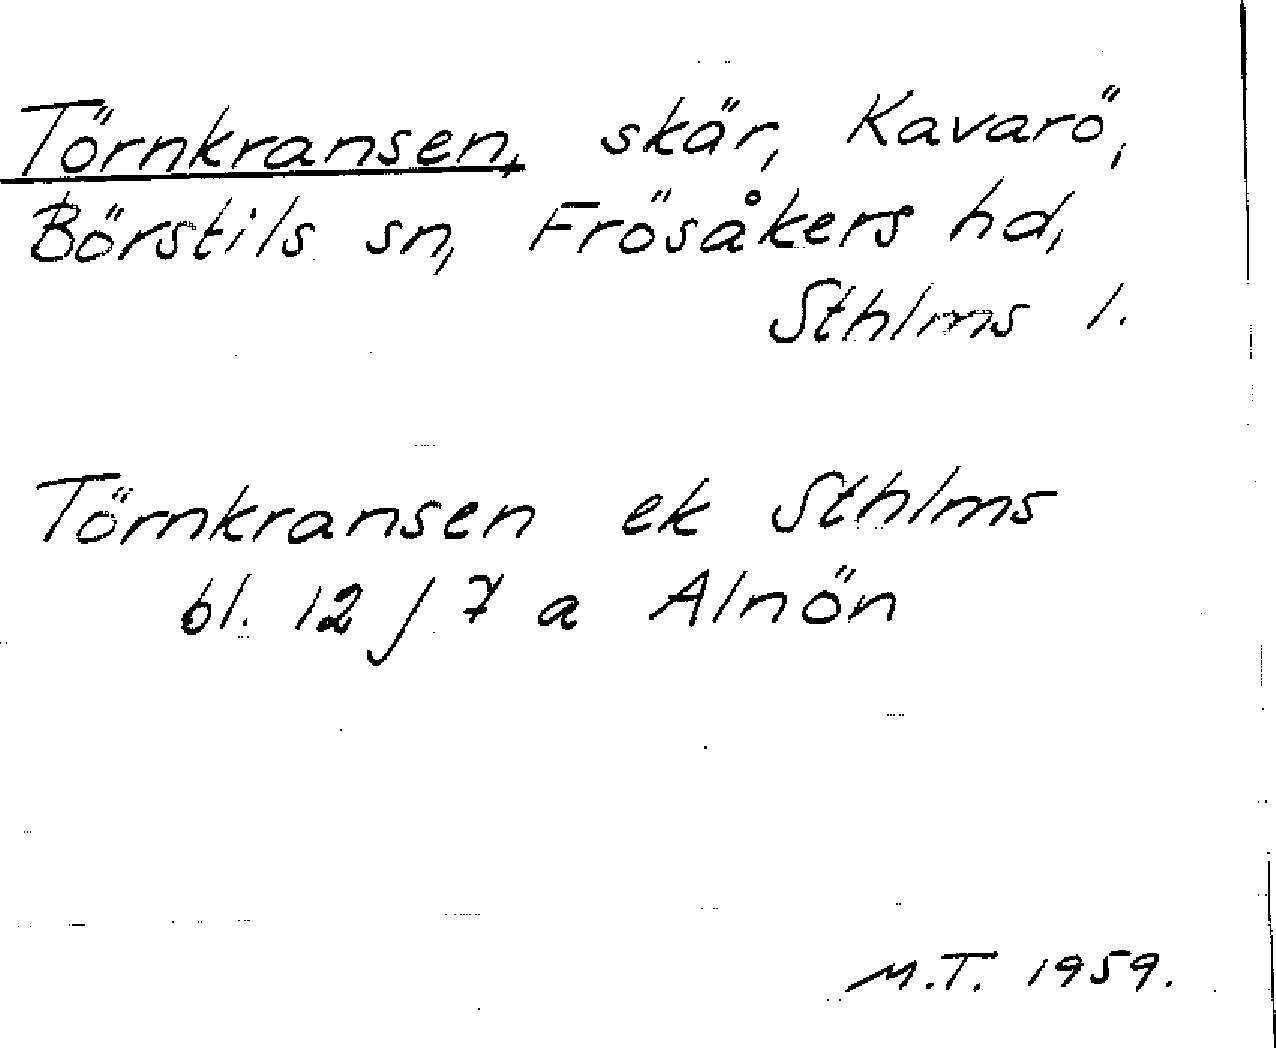 Törnkransen, skär, Kavarö,
Börstils sn, Frösåkers hd,
Sthlms l.
Törnkransen ek Sthlms
bl. 12 j 7 a Alnön
M.T. 1959.